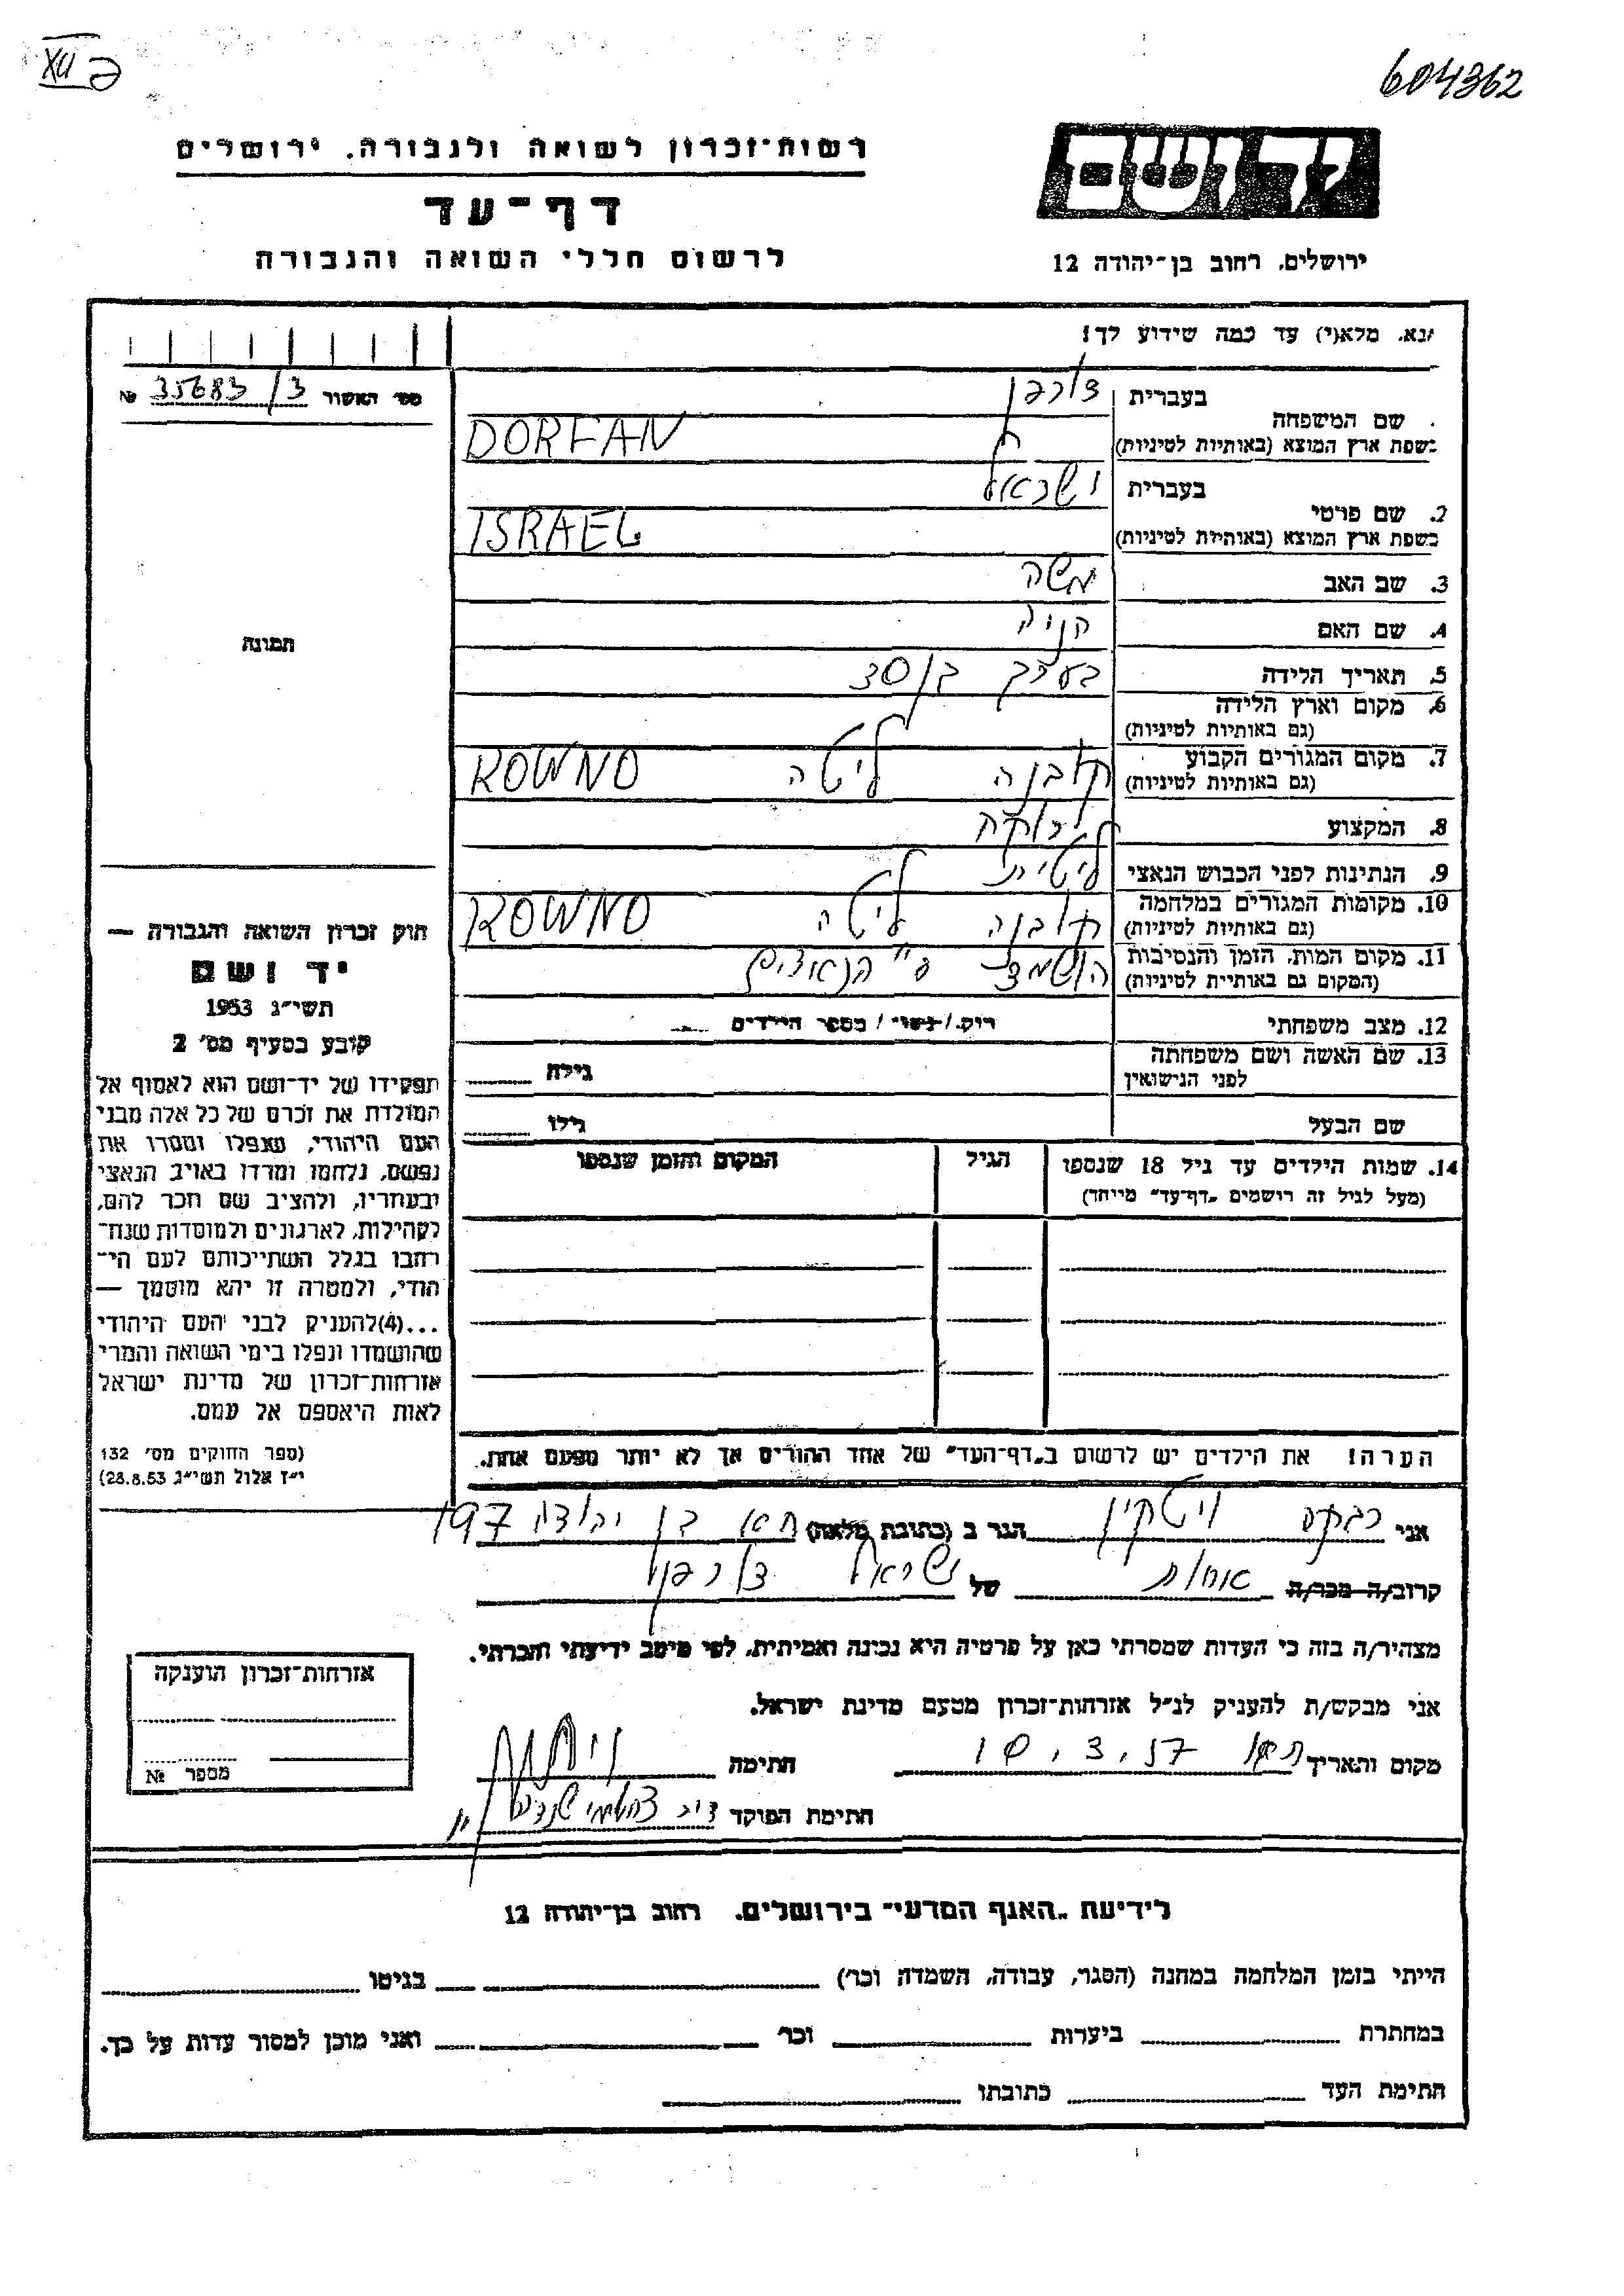 604362
XII
רשות־זכרון לשואה ולגבורה. ירושלים
יד ושם
דף־עד
לרשום חללי השואה והגבורה
ירושלים. רחוב בן־יהודה 12
נא. מלא(י) עד כמה שידוע לך!
מס׳ האשור 35683/3 №
בעברית דורפן
שם המשפחה
בשפת ארץ המוצא (באותיות לטיניות) DORFAN
בעברית ישראל
2. שם פרטי
בשפת ארץ המוצא (באותיות לטיניות) ISRAEL
3. שם האב משה
4. שם האם חניה
תמונה
5. תאריך הלידה בערך בן 30
6. מקום וארץ הלידה
(גם באותיות לטיניות)
7. מקום המגורים הקבוע קובנה ליטה KOWNO
(גם באותיות לטיניות)
8. המקצוע רוקח
9. הנתינות לפני הכבוש הנאצי ליטאית
10. מקומות המגורים במלחמה
(גם באותיות לטיניות) קובנה ליטה KOWNO
11. מקום המות, הזמן והנסיבות
(המקום גם באותיות לטיניות) הושמד ע״י הנאצים
12. מצב משפחתי רוק/נשוי/מספר הילדים
13. שם האשה ושם משפחתה
לפני הנישואין גילה
שם הבעל גילו
14. שמות הילדים עד גיל 18 שנספו הגיל המקום והזמן שנספו
(מעל לגיל זה רושמים „דף־עד״ מייחד)
הערה! את הילדים יש לרשום ב„דף־העד״ של אחד ההורים אך לא יותר מפעם אחת.
חוק זכרון השואה והגבורה —
יד ושם
תשי״ג 1953
קובע בסעיף מס׳ 2
תפקידו של יד־ושם הוא לאסוף אל
המולדת את זכרם של כל אלה מבני
העם היהודי, שנפלו ומסרו את
נפשם, נלחמו ומרדו באויב הנאצי
ובעוזריו, ולהציב שם וזכר להם,
לקהילות, לארגונים ולמוסדות שנח־
רחבו בגלל השתייכותם לעם הי־
הודי, ולמטרה זו יהא מוסמך —
...(4)להעניק לבני העם היהודי
שהושמדו ונפלו בימי השואה והמרי
אזרחות־זכרון של מדינת ישראל
לאות היאספם אל עמם.
(ספר החוקים מס׳ 132
י״ז אלול תשי״ג 28.8.53)
אני רבקה ויטקין הגר ב (כתובת מלאה) ת״א בן יהודה 197
קרוב/ה מכר/ה אחות של ישראל דורפן
מצהיר/ה בזה כי העדות שמסרתי כאן על פרטיה היא נכונה ואמיתית, לפי מיטב ידיעתי והכרתי.
אני מבקש/ת להעניק לנ״ל אזרחות־זכרון מטעם מדינת ישראל.
מקום ותאריך חתימה
חתימת הפוקד
אזרחות־זכרון הוענקה
מספר №
לידיעת „האגף המדעי״ בירושלים. רחוב בן־יהודה 12
הייתי בזמן המלחמה במחנה (הסגר, עבודה, השמדה וכר׳) בגיטו
במחתרת ביערות וכר׳ ואני מוכן למסור עדות על כך.
חתימת העד כתובתו